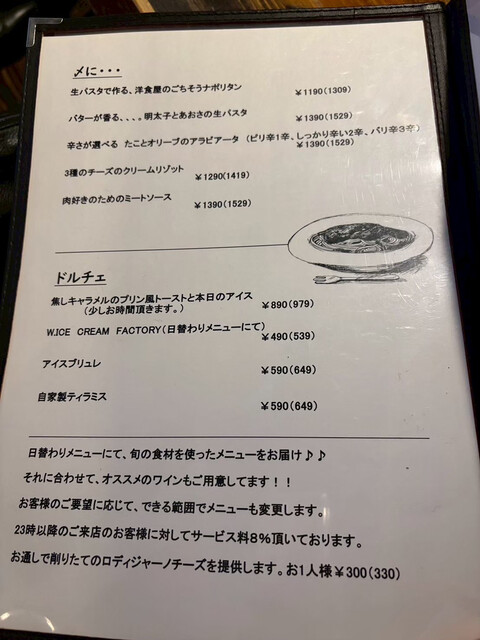 〆に・・・
生パスタで作る、洋食屋のごちそうナポリタン ¥1190(1309)
バターが香る、、、。明太子とあおさの生パスタ ¥1390(1529)
辛さが選べる たことオリーブのアラビアータ (ピリ辛1辛、しっかり辛い2辛、バリ辛3辛)
¥1390(1529)
3種のチーズのクリームリゾット ¥1290(1419)
肉好きのためのミートソース ¥1390(1529)
ドルチェ
焦しキャラメルのプリン風トーストと本日のアイス ¥890(979)
(少しお時間頂きます。)
W.ICE CREAM FACTORY(日替わりメニューにて) ¥490(539)
アイスブリュレ ¥590(649)
自家製ティラミス ¥590(649)
日替わりメニューにて、旬の食材を使ったメニューをお届け♪♪
それに合わせて、オススメのワインもご用意してます！！
お客様のご要望に応じて、できる範囲でメニューも変更します。
23時以降のご来店のお客様に対してサービス料8%頂いております。
お通しで削りたてのロディジャーノチーズを提供します。お1人様¥300(330)